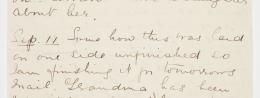 about her.
Sep. 11 Some how this was laid
on one side unfinished so
I am finishing it for tomorrows
mail. Grandma has been